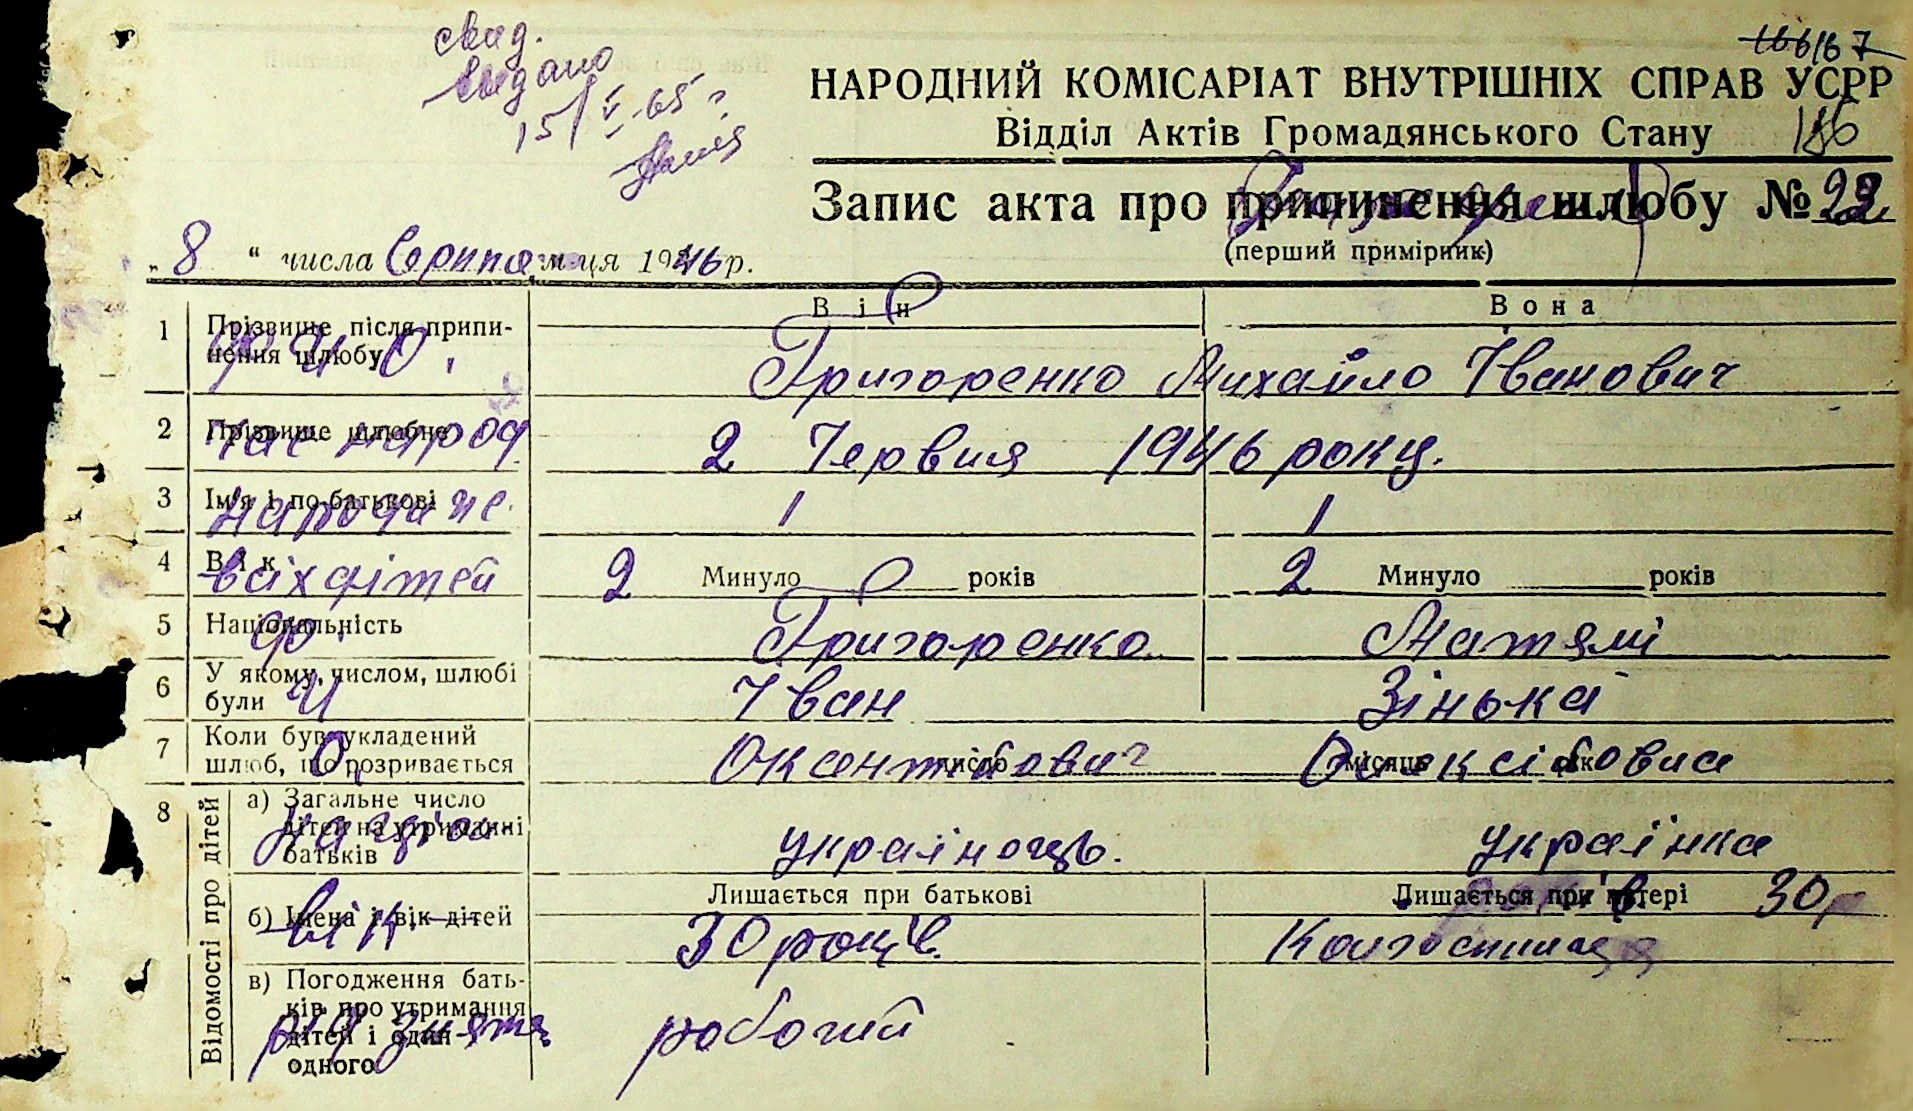 свид.
видано
15/V-65 г
166167
НАРОДНИЙ КОМІСАРІАТ ВНУТРІШНІХ СПРАВ УСРР
Відділ Актів Громадянського Стану 186
Запис акта про припинення шлюбу № 22
(перший примірник)
„ 8 “ числа Серпня м-ця 1946 р.
Він Вона
1 Прізвище після припинення шлюбу
Ф. И. О. Григоренко Михайло Іванович
2 Прізвище шлюбне
час народ 2 Червня 1946 року.
3 Ім'я і по-батькові
народже. 1 1
4 Вік
всіх дітей 2 Минуло років 2 Минуло років
5 Національність
Ф. Григоренко Матялі
6 У якому, числом, шлюбі були
И Іван Зінька
7 Коли був укладений шлюб, що розривається число місяць рік
О. Оксентійович Олексіївна
Відомості про дітей
8 а) Загальне число дітей на утриманні батьків
націон. українець. українка
Лишається при батькові Лишається при матері
б) Імена і вік дітей
вік 30 років. 30р
Колгоспниця
в) Погодження батьків про утримання дітей і один одного
рід занять робочий